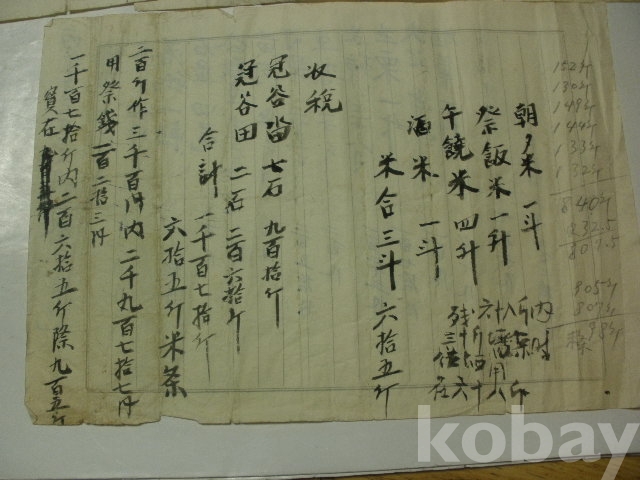 朝夕米 一斗
祭飯米 一升
午饒米 四升
酒米 一斗
米合三斗 六拾五斤
收稅
冠谷畓 七石 九百拾斤
冠谷田 二石 二百六拾斤
合計 一千百七拾斤
六拾五斤 米条
二百斤作三千百円內 二千九百七拾七円
用祭錢 一百二拾三円
一千百七拾斤內 二百六拾五斤除 九百五斤
實在
152斤
130斤
149斤
144斤
133斤
132斤
840斤
32.5
807.5
905斤
807斤
98斤
kobay